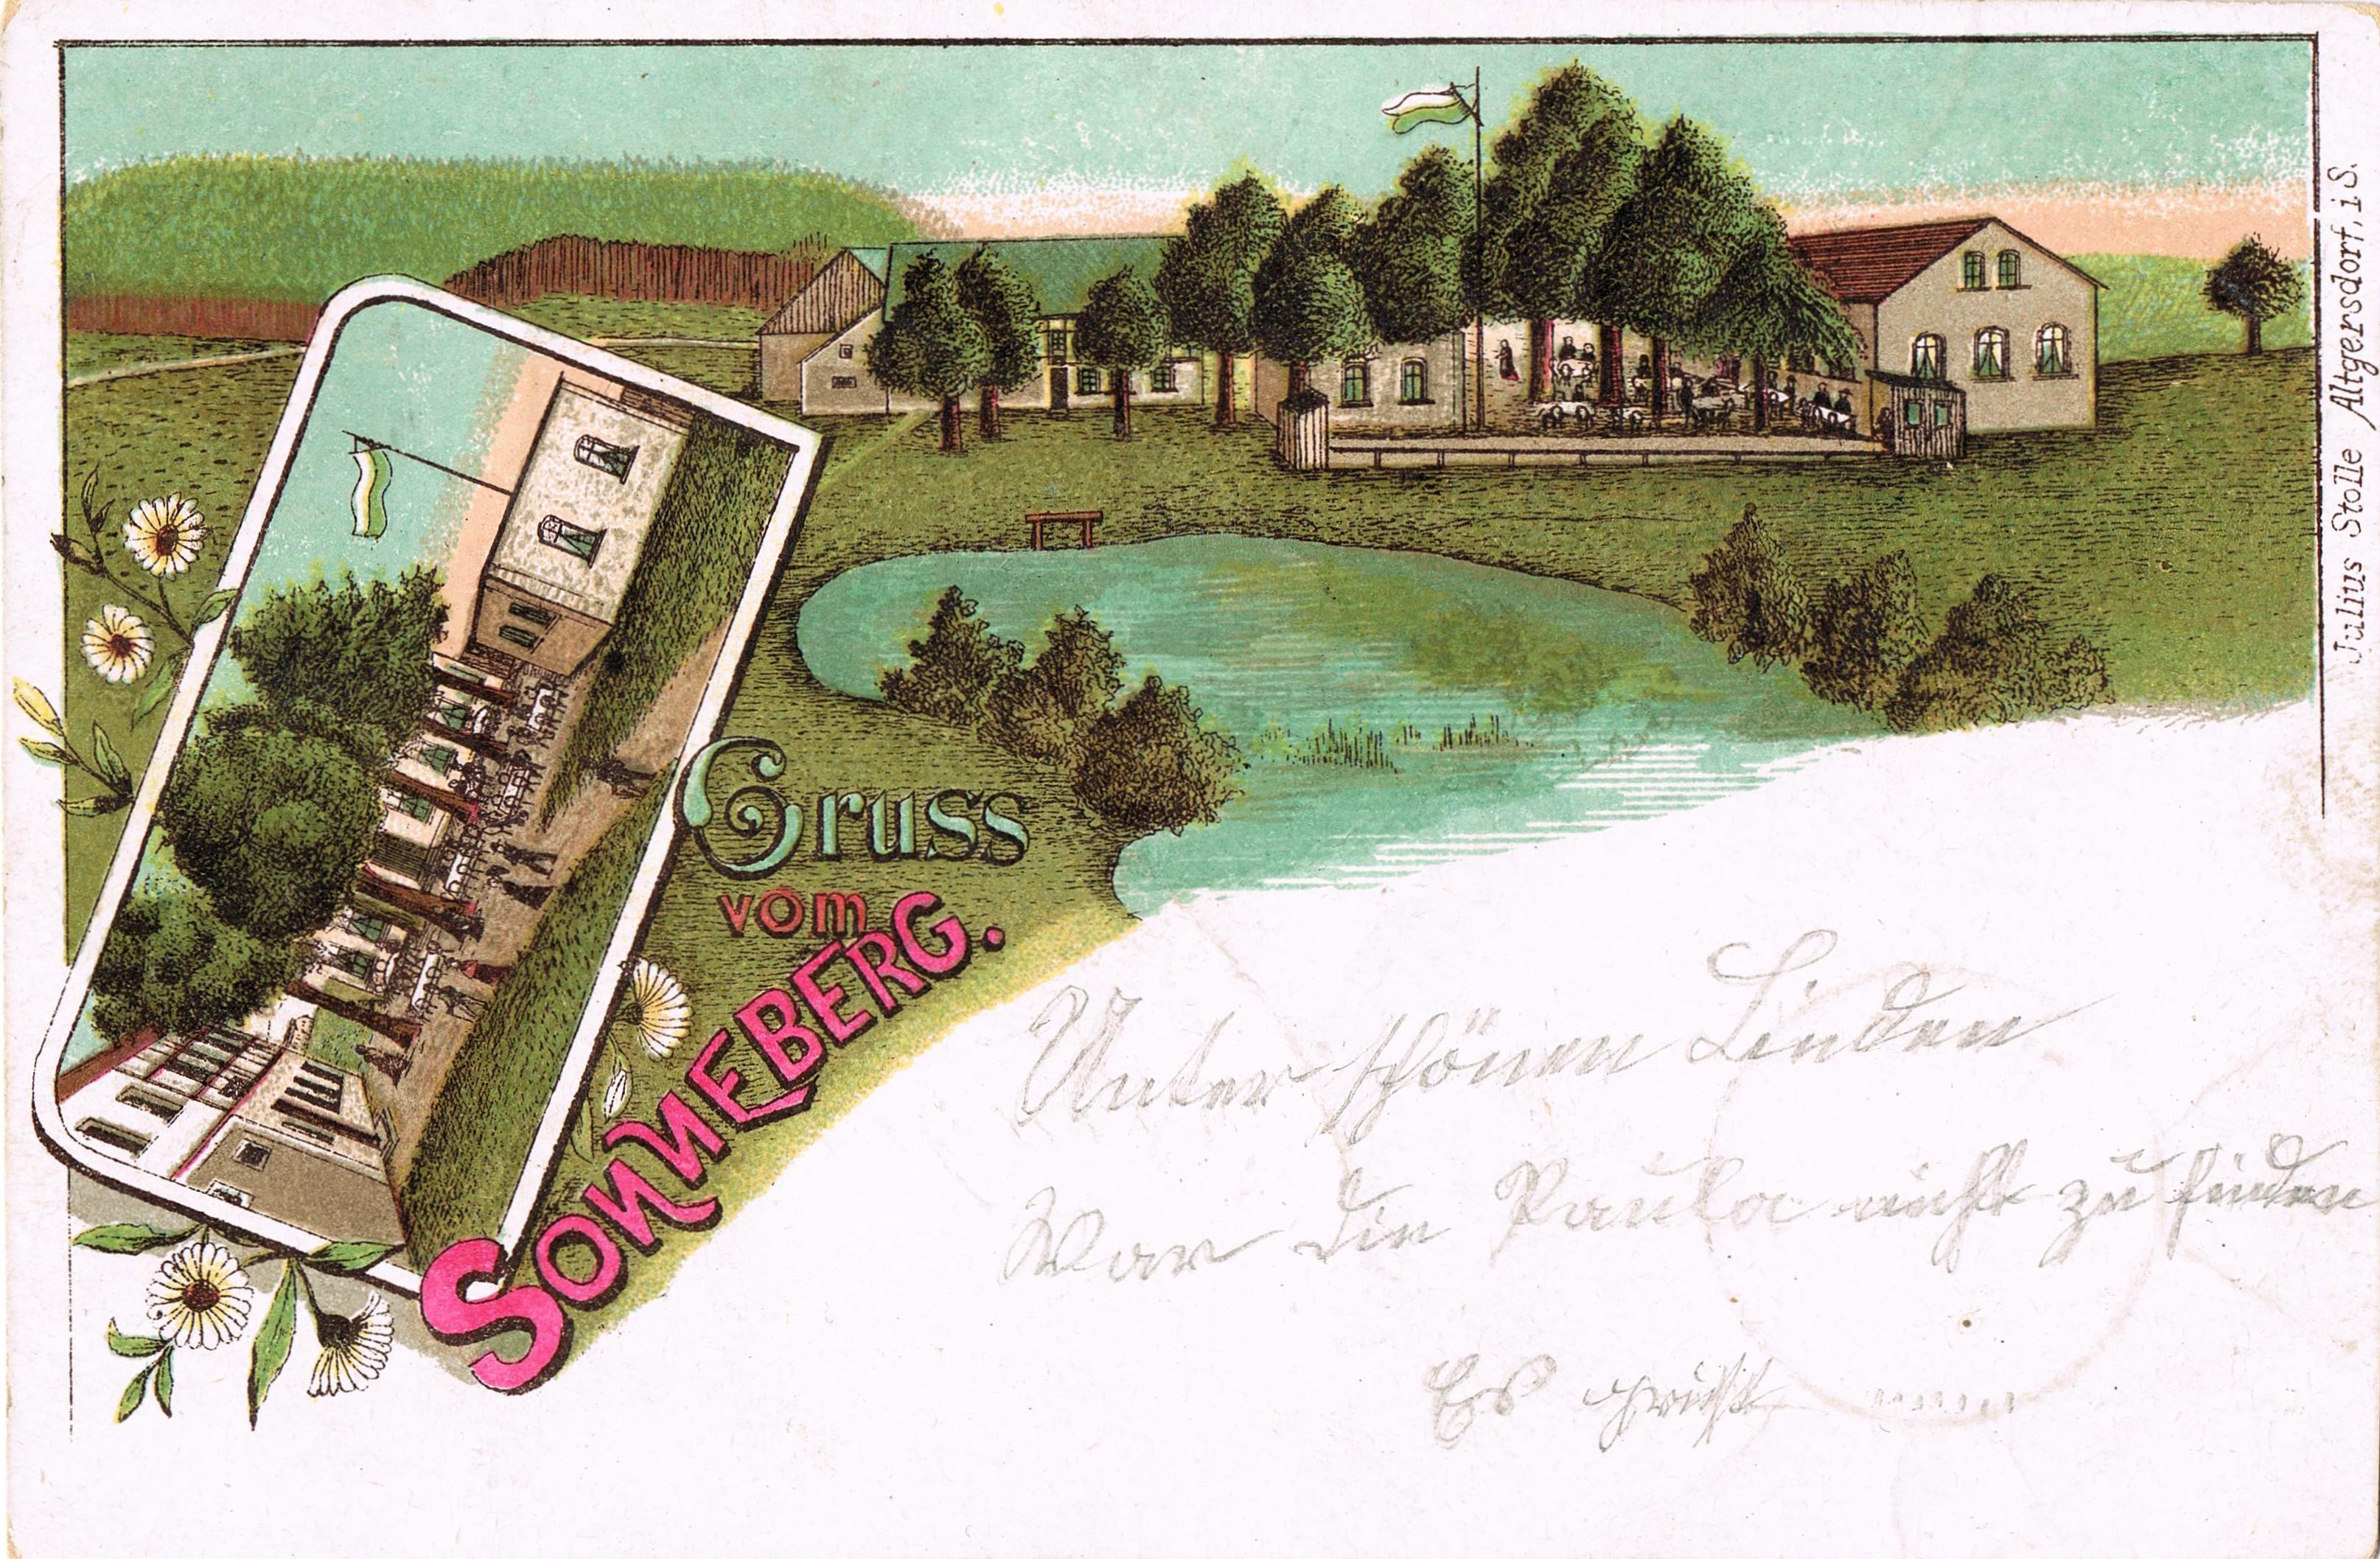 Gruss
vom
SONNEBERG.
Julius Stolle Altgersdorf, i S.
Unter schönen Linden
War die Paula nicht zu finden
Es grüßt .......